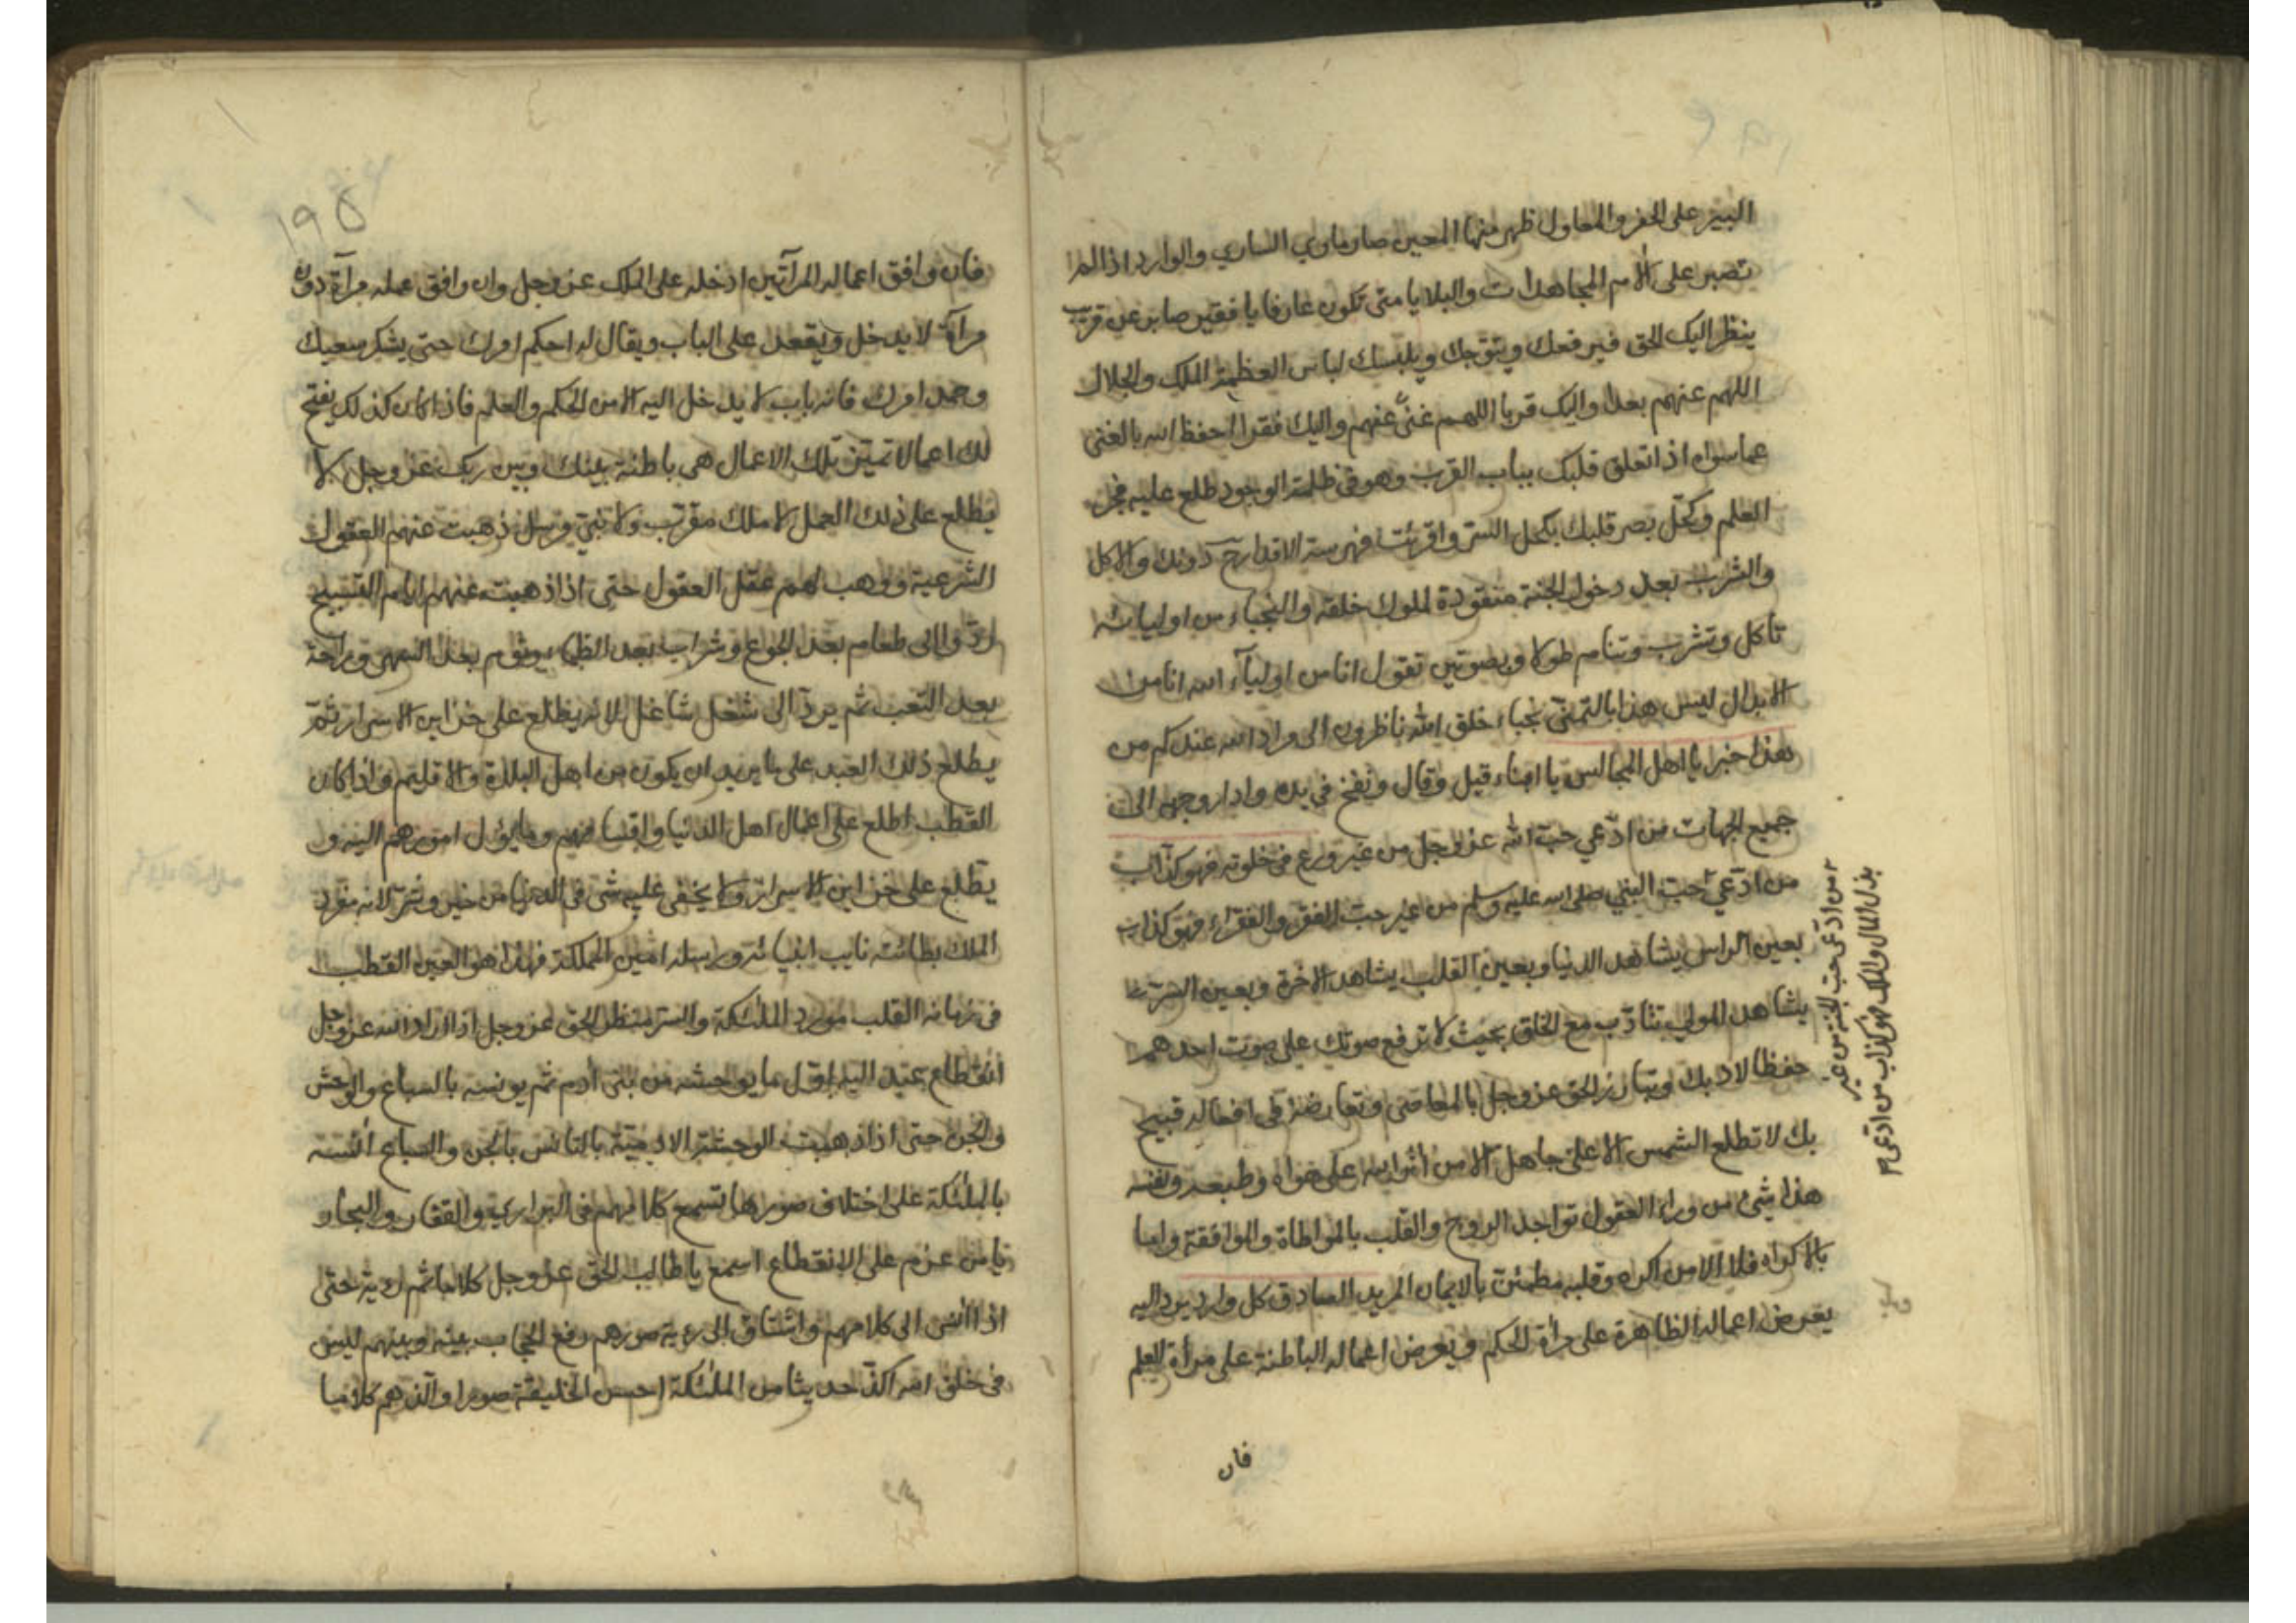 البير على الحفر والمعاول ظهر منها المعين صار ماوي الساري والوارد اذا لم
تصبر على الام المجاهدات والبلايا متى تكون عارفا يا فقير صابر عن قريب
ينظر اليك الحق فيرفعك ويتوجك ويلبسك لباس العظمة الملك والجلال
اللهم عنهم بعدا واليك قربا اللهم غنىً عنهم واليك فقرا احفظ الله بالغنى
عما سواه اذا تعلق قلبك بباب القرب وهو في ظلمة الوجود طلع عليه فجر
العلم وكحّل بصر قلبك بكحل السر واقرئت فهرسة الاقدار دونك والاكل
والشرب بعد دخول الجنة منقودة لملوك خلقه والنجباء من اوليائه
تاكل وتشرب وتنام طولا وبصوتين تقول انا من اوليآء الله انا من
الابدال ليس هذا بالتمنّي نجباء خلق الله ناظرون الى مراد الله عندكم من
هذا خبر يا اهل المجالس يا امناء قيل وقال ونفخ في يده وادار وجهه الى
جميع الجهات من ادّعي حبّ الله عز وجل من غير ورع في خلوته فهو كذّاب
من ادّعي حبّ النبي صلى الله عليه وسلم من غير حبّ الفقر والفقراء فهو كذاب
بعين الراس يشاهد الدنيا وبعين القلب يشاهد الاخرة وبعين السرّ
يشاهد المولي تتأدّب مع الخلق بحيث لا ترفع صوتك على صوت احدهم
حفظا لادبك وتبارز الحق عز وجل بالمعاصي وتعارضه في افعاله قبيح
بك لا تطلع الشمس الا على جاهل الا من اثر الله على هواه وطبعه ونفسه
هذا شيئ من وراء العقول تواجد الروح والقلب بالمواطاة والموافقة واما
بالاكراه فلا الا من اكره وقلبه مطمئن بالايمان المريد الصادق كل وارد يرد اليه
يعرض اعماله الظاهرة على مرأة الحكم ويعرض اعماله الباطنة على مرأة العلم
فان
من ادّعى حب الجنة من غير
بذل المال والملك فهو كذاب من ادّعى
١٩٥
فان وافق اعماله المرآتين ادخله على الملك عز وجل وان وافق عمله مرآة دون
مرآة لا يدخل ويقعد على الباب ويقال له احكم امرك حتى يشكر سعيك
وحمد امرك فانه باب لا يدخل اليه الا من الحكم والعلم فاذا كان كذلك يفتح
لك اعمالا تميّن تلك الاعمال هي باطنة بينك وبين ربك عز وجل لا
يطلع على ذلك العمل لا ملك مقرّب ولا نبي مرسل ذهبت عنهم العقول
الشرعية ووهب لهم عقل العقول حتى اذا ذهبت عنهم ايام التسبيح
ردّوا الى طعام بعد الجوع وشراب بعد الظما ونوم بعد السهر وراحة
بعد التعب ثم يردّ الى شغل شاغل لانه يطلع على خزاين الاسرار ثمّ
يطلع ذلك العبد على ما يريد ان يكون من اهل البلدة والاقليم واذا كان
القطب اطلع على اعمال اهل الدنيا واقسامهم وما يؤل امورهم اليه و
يطّلع على خزاين الاسرار ولا يخفى عليه شئ في الدنيا من خير وشرّ لانه مفرد
الملك بطانته نايب انبيائه ورسله امين المملكة فهذا هو العين القطب
في زمانه القلب مورد الملئكة والسر منظر الحق عز وجل اذا اراد الله عز وجل
انقطاع عبد اليه اول ما يوحشه من بني ادم ثم يونسه بالسباع والوحش
والجن حتى اذا ذهبت الوحشة الادمية بالتانس بالجن والسباع آنسه
بالملئكة على اختلاف صورها تسمع كلامهم في البراري والقفار والبحار
يا من عزم على الانقطاع اسمع يا طالب الحق عز وجل كلاما ثم رؤية حتى
اذا انس الى كلامهم واشتاق الى رؤية صورهم رفع الحجاب بينه وبينهم ليس
في خلق الله الذّ حديثا من الملئكة احسن الخليقة صورا والذهم كلاما